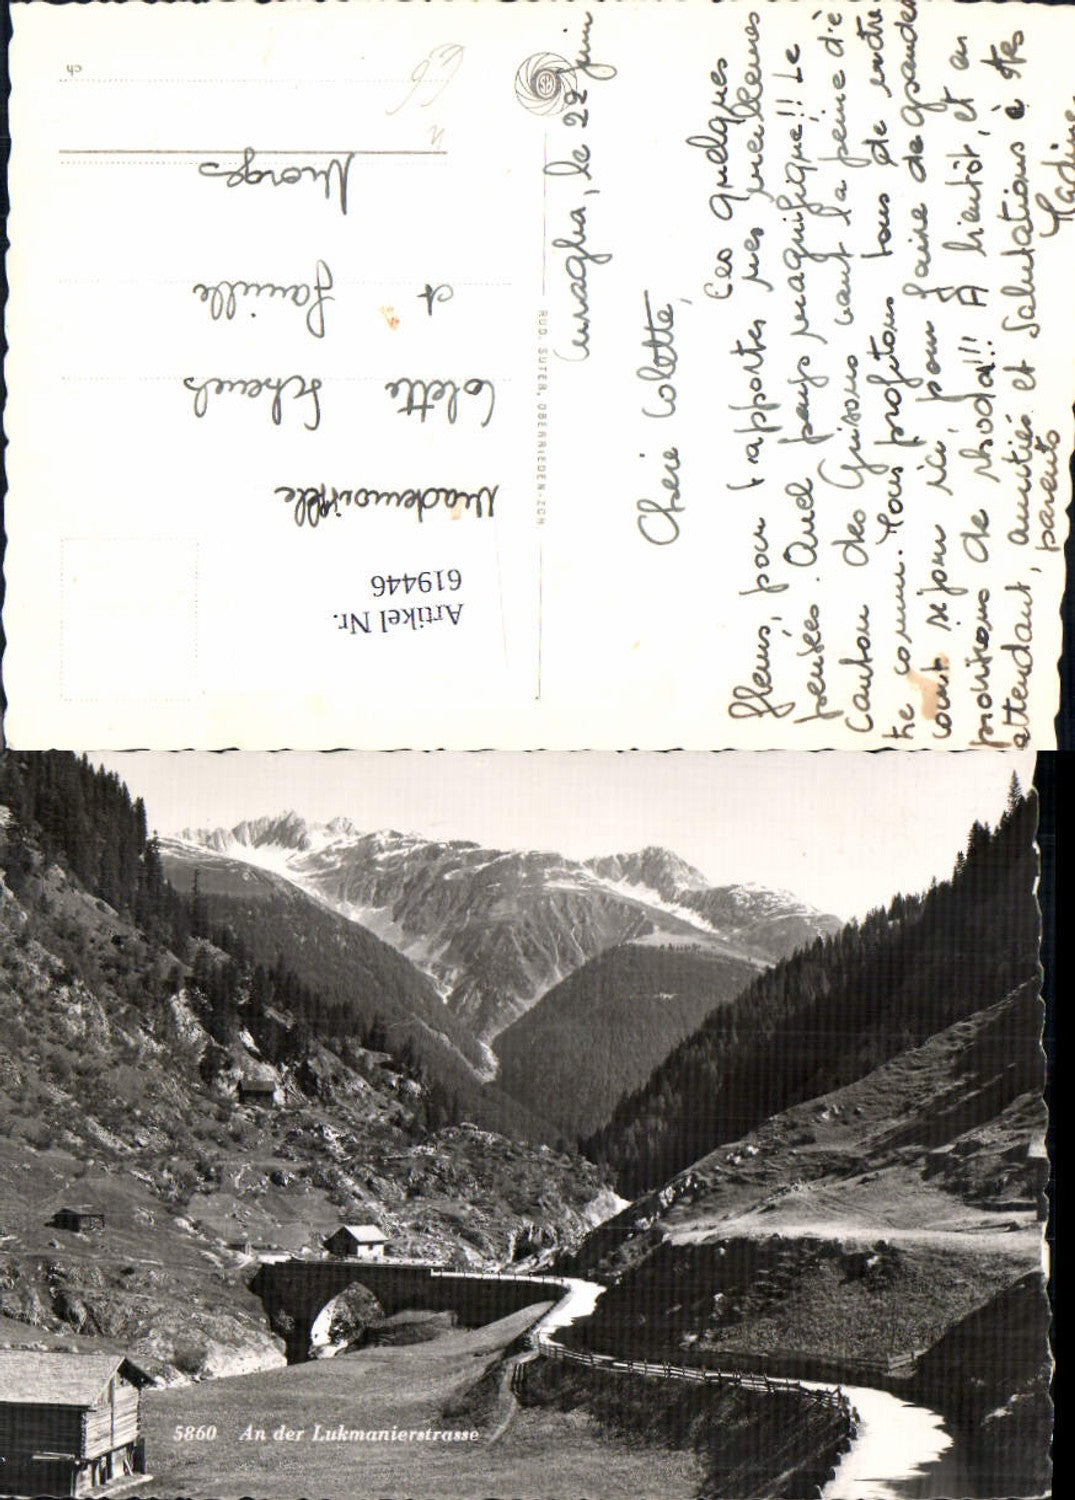 Curaglia, le 22 juin
Chère Colette,
Ces quelques
fleurs, pour t'apporter mes meilleures
pensées. Quel pays magnifique!! Le
canton des Grisons vaut la peine d'ê
tre connu. Nous profitons tous de notre
court séjour ici, pour faire de grandes
provisions de rhodo!!! A bientôt, et en
attendant, amitiés et salutations à tes
parents
Nadine
RUD. SUTER, OBERRIEDEN-ZCH.
Artikel Nr.
619446
Mademoiselle
Colette
et famille
Morges
5860 An der Lukmanierstrasse